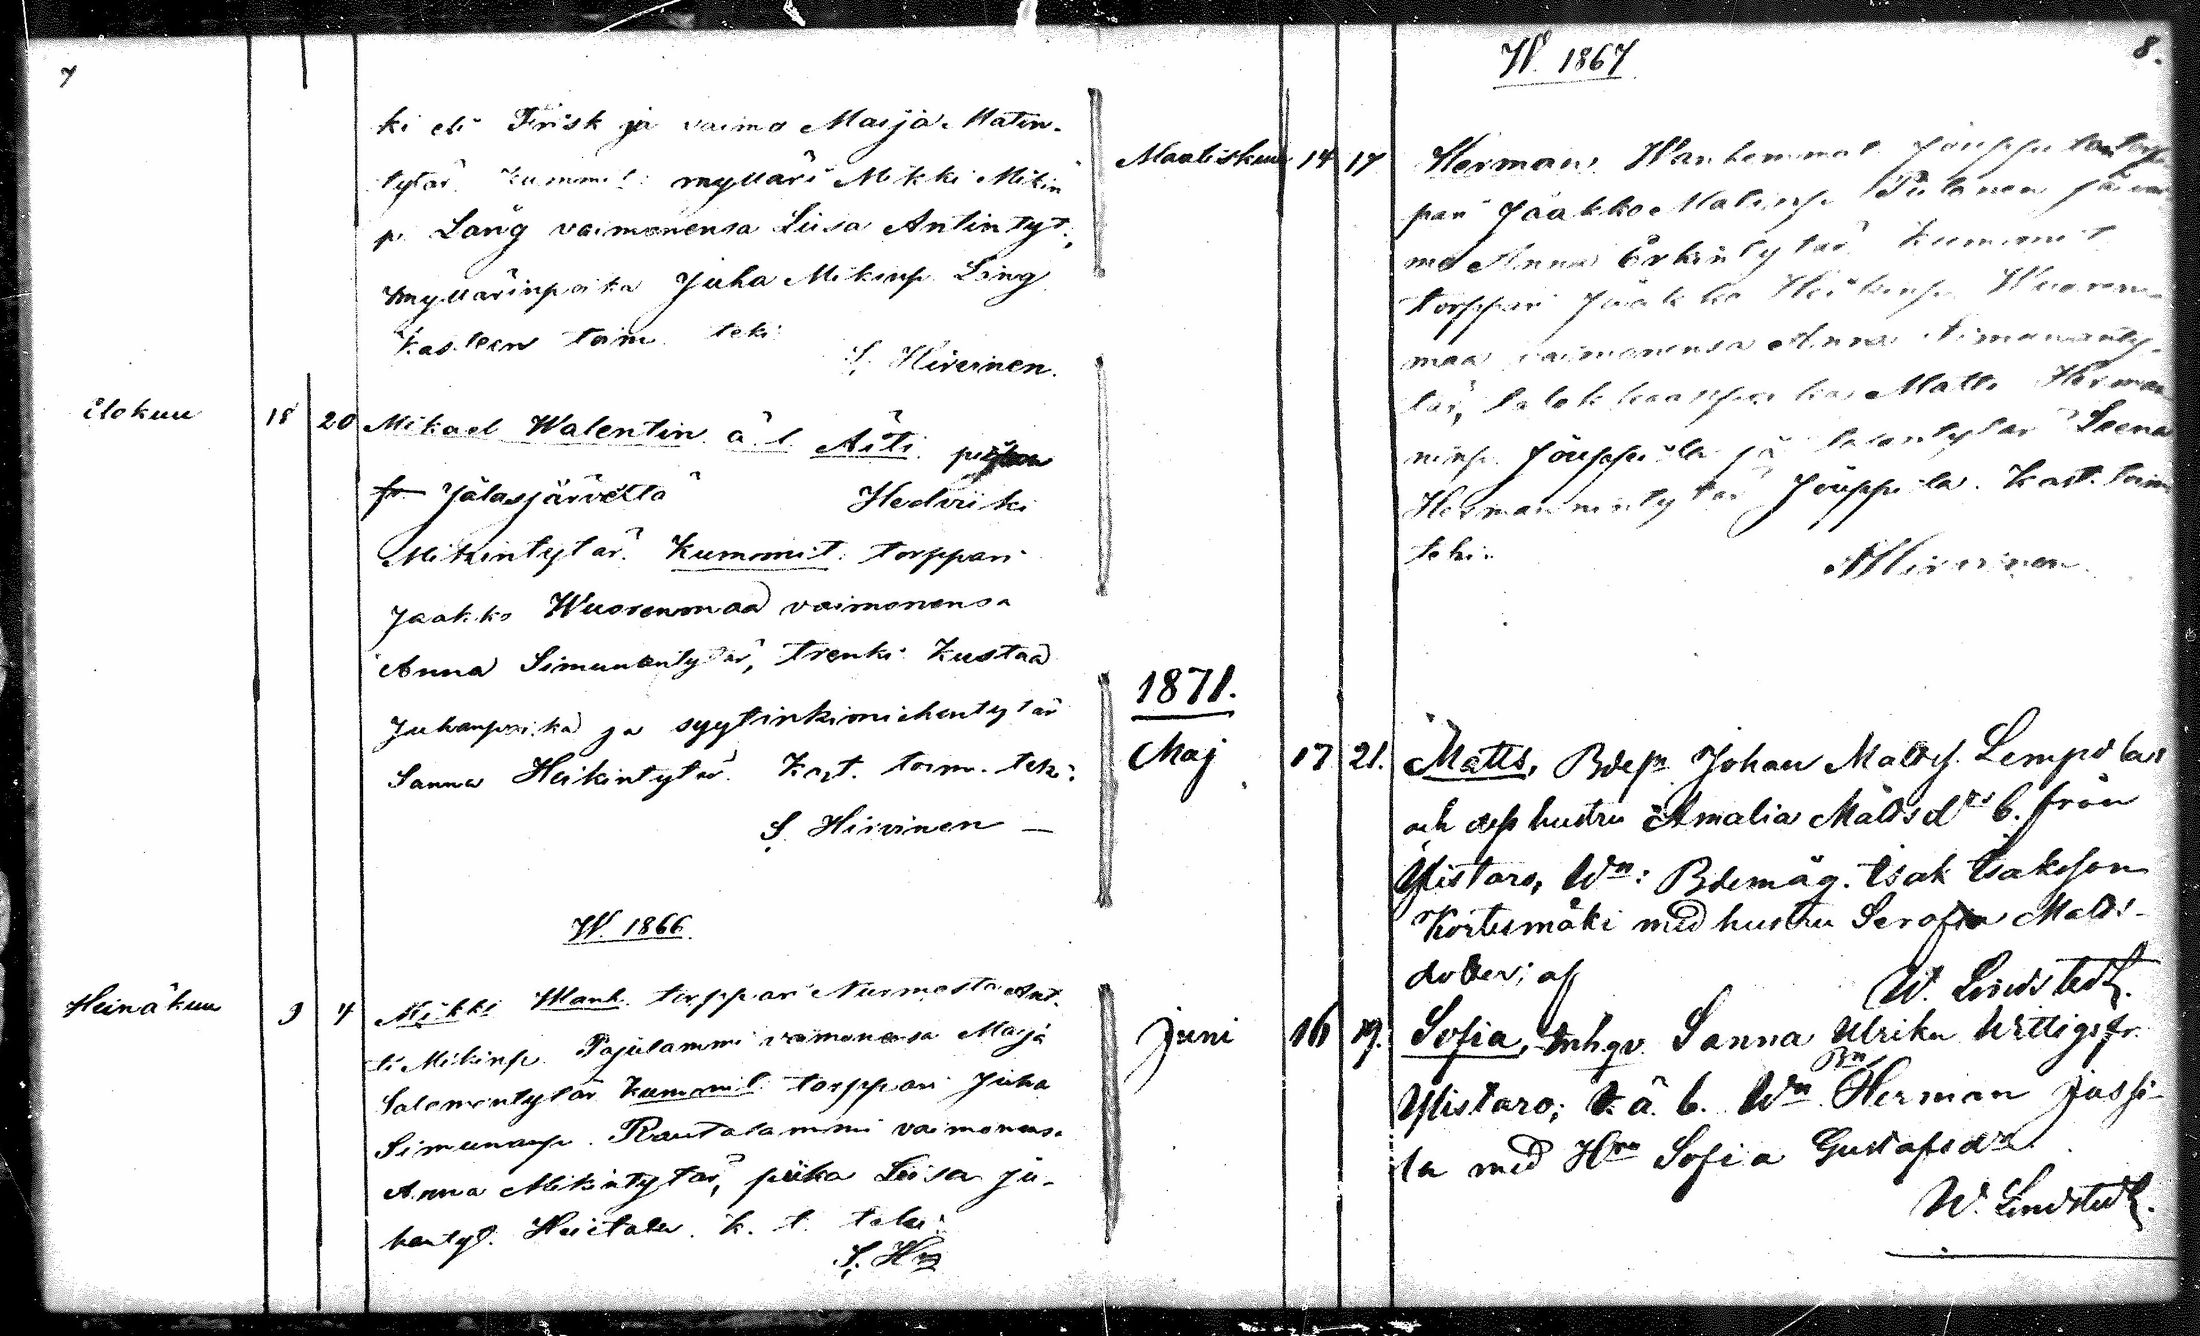 7
ki eli Frisk ja vaimo Maija Matin-
tytär. Kummit: mylläri Mikki Mikin
p. Lång vaimonensa Liisa Antintyt.,
myllärinpoika Juha Mikinp. Lång
Kasteen toim. teki
S. Hirvinen.
Elokuu 18 20 Mikael Walentin ä. l. Äiti
fr Jalasjärveltä Hedviiki
Mikintytär. Kummit. torppari
Jaakko Wuorenmaa vaimonensa
Anna Simunantytär, trenki Kustaa
Juhanpoika ja syytinkimiehentytär
Sanna Heikintytär. Kast. toim. teki:
S. Hirvinen —
W. 1866
Heinäkuu 3 4 Mikki Manl. torppari Nurmosta Ant-
ti Mikinp. Pajulammi vaimonensa Maija
Salomontytär Kummit. torppari Juha
Simunanp. Rautalammi vaimonensa
Anna Mikintytär, piika Liisa Ju-
hantyt. Hietala. k. t. teki:
S. Hn
8.
W. 1867
Maaliskuu 14 17 Herman, Wanhemmat Jouppilan torp-
pari Jaakko Matinp. ja vai
mo Anna Erkintytär. Kummit
torppari Jaakko Heikinp. Wuoren-
maa vaimonensa Anna Simunanty-
tär, Matti Herman
ninp. Jouppila ja talontytär Leena
Hermannintytär Jouppila. Kast. toim
teki:
Hirvinen
1871.
Maj 17 21. Matts, Bdesn Johan Mattsn Lempola
och dess hustru Amalia Mattsdr b. från
Ylistaro, Wn: Bdemåg. Isak Isaksson
Kortesmäki med hustru Serafia Matts-
dotter; af
W. Lindstedt.
Juni 16 19. Sofia, Inhqv. Sanna Ulrika Wittigs fr.
Ylistaro; ä. b. Wn Bn Herman Jussi-
la med Hru Sofia Gustafsdr
W. Lindstedt.